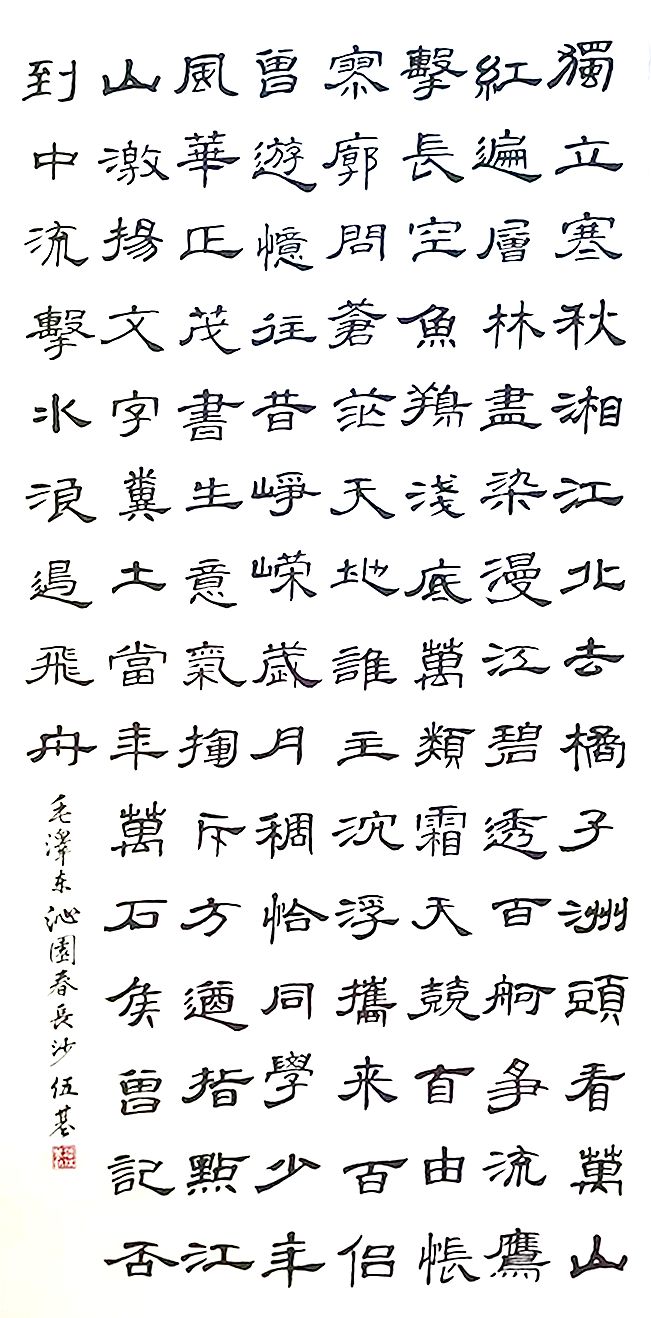 獨立寒秋湘江北去橘子洲頭看萬山
紅遍層林盡染漫江碧透百舸爭流鷹
擊長空魚翔淺底萬類霜天競自由悵
寥廓問蒼茫天地誰主沉浮攜来百侣
曾遊憶往昔崢嶸歲月稠恰同學少年
風華正茂書生意氣揮斥方遒指點江
山激揚文字糞土當年萬石侯曾記否
到中流擊水浪遏飛舟
毛澤东沁園春長沙伍基